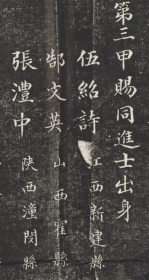 第三甲賜同進士出身
伍紹詩 江西新建縣
郜文英 山西霍縣
張灃中 陝西潼関縣